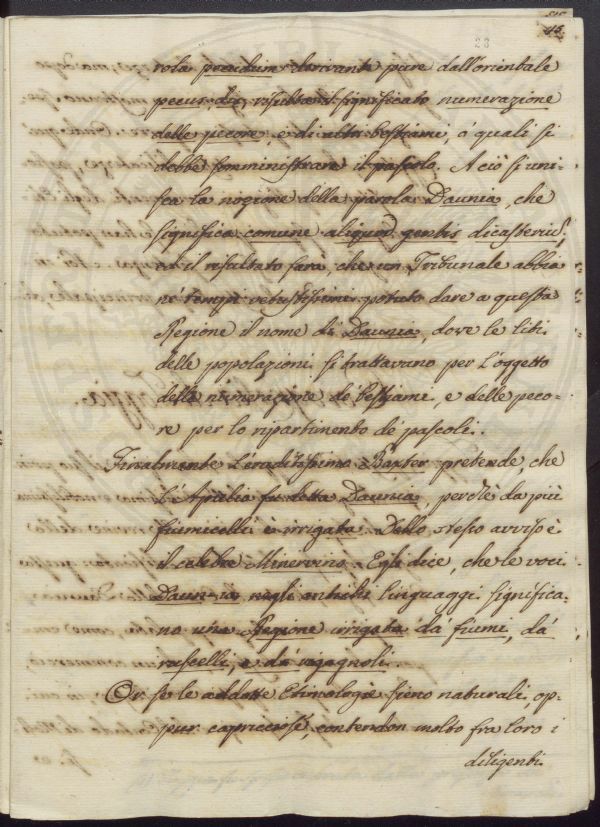 23
rola pecudum derivante pure dall'orientale
pecur, di risulta il significato numerazione
delle pecore, e di altri bestiami, a' quali si
debbe somministrare il pascolo. A ciò si uni-
sca la nozione della parola Daunia, che
significa comune aliquod gentis dicasterium,
ed il risultato sarà, che un Tribunale abbia
ne' tempi vetustissimi potuto dare a questa
Regione il nome di Daunia, dove le liti
delle popolazioni si trattavano per l'oggetto
della numerazione de' bestiami, e delle peco-
re per lo ripartimento de' pascoli.
Finalmente l'eruditissimo Baxter pretende, che
l'Apulia fu detta Daunia, perchè da più
fiumicelli è irrigata. Dello stesso avviso è
il celebre Minervino. Egli dice, che le voci
Daun-ia negli antichi linguaggi significa-
no una Regione irrigata da' fiumi, da'
ruscelli, e da' rigagnoli.
Or se le addotte Etimologie sieno naturali, op-
pur capricciose, contendon molto fra loro i
diligenti